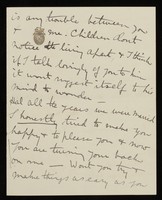 is any trouble between you
& me. Children dont
notice living apart & I think
if I talk lovingly of you to him
it wont suggest itself to his
mind to wonder —
Well all the years we were married
I honestly tried to make you
happy & to please you & now
You are turning your back
on me — Wont you try &
make things as easy as you